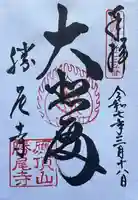 奉拝
令和七年三月十八日
大悲殿
勝尾寺
頂山
勝尾寺